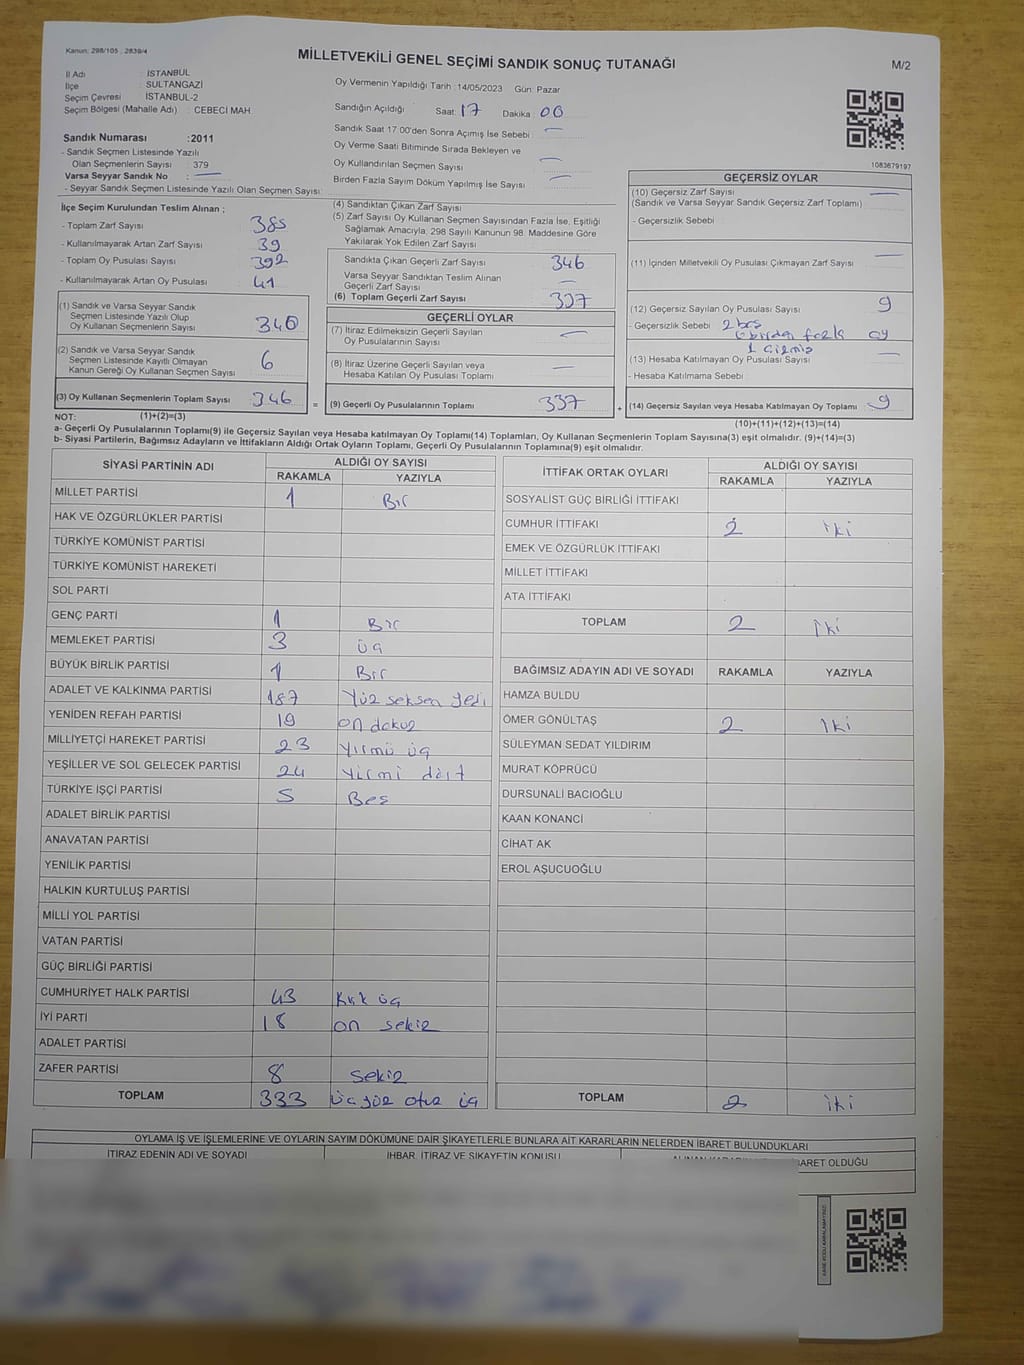 Kanun: 298/105 ; 2839/4
MİLLETVEKİLİ GENEL SEÇİMİ SANDIK SONUÇ TUTANAĞI
M/2
İl Adı : İSTANBUL
İlçe : SULTANGAZİ
Seçim Çevresi : İSTANBUL-2
Seçim Bölgesi (Mahalle Adı) : CEBECİ MAH.
Sandık Numarası :2011
- Sandık Seçmen Listesinde Yazılı
Olan Seçmenlerin Sayısı : 379
Varsa Seyyar Sandık No : —
- Seyyar Sandık Seçmen Listesinde Yazılı Olan Seçmen Sayısı:
Oy Vermenin Yapıldığı Tarih : 14/05/2023 Gün: Pazar
Sandığın Açıldığı Saat: 17 Dakika : 00
Sandık Saat 17.00'den Sonra Açımış İse Sebebi : —
Oy Verme Saati Bitiminde Sırada Bekleyen ve
Oy Kullandırılan Seçmen Sayısı —
Birden Fazla Sayım Döküm Yapılmış İse Sayısı —
1083679197
İlçe Seçim Kurulundan Teslim Alınan ;
- Toplam Zarf Sayısı 385
- Kullanılmayarak Artan Zarf Sayısı 39
- Toplam Oy Pusulası Sayısı 392
- Kullanılmayarak Artan Oy Pusulası 41
(1) Sandık ve Varsa Seyyar Sandık
Seçmen Listesinde Yazılı Olup
Oy Kullanan Seçmenlerin Sayısı 340
(2) Sandık ve Varsa Seyyar Sandık
Seçmen Listesinde Kayıtlı Olmayan
Kanun Gereği Oy Kullanan Seçmen Sayısı 6
(3) Oy Kullanan Seçmenlerin Toplam Sayısı 346 =
(1)+(2)=(3)
(4) Sandıktan Çıkan Zarf Sayısı
(5) Zarf Sayısı Oy Kullanan Seçmen Sayısından Fazla İse, Eşitliği
Sağlamak Amacıyla; 298 Sayılı Kanunun 98. Maddesine Göre
Yakılarak Yok Edilen Zarf Sayısı
Sandıkta Çıkan Geçerli Zarf Sayısı 346
Varsa Seyyar Sandıktan Teslim Alınan
Geçerli Zarf Sayısı —
(6) Toplam Geçerli Zarf Sayısı 337
GEÇERLİ OYLAR
(7) İtiraz Edilmeksizin Geçerli Sayılan
Oy Pusulalarının Sayısı —
(8) İtiraz Üzerine Geçerli Sayılan veya
Hesaba Katılan Oy Pusulası Toplamı —
(9) Geçerli Oy Pusulalarının Toplamı 337 +
GEÇERSİZ OYLAR
(10) Geçersiz Zarf Sayısı —
(Sandık ve Varsa Seyyar Sandık Geçersiz Zarf Toplamı)
- Geçersizlik Sebebi :
(11) İçinden Milletvekili Oy Pusulası Çıkmayan Zarf Sayısı —
(12) Geçersiz Sayılan Oy Pusulası Sayısı 9
- Geçersizlik Sebebi 2 boş
6 birden fazla oy
1 çizmiş
(13) Hesaba Katılmayan Oy Pusulası Sayısı —
- Hesaba Katılmama Sebebi :
(14) Geçersiz Sayılan veya Hesaba Katılmayan Oy Toplamı 9
(10)+(11)+(12)+(13)=(14)
NOT:
a- Geçerli Oy Pusulalarının Toplamı(9) ile Geçersiz Sayılan veya Hesaba katılmayan Oy Toplamı(14) Toplamları, Oy Kullanan Seçmenlerin Toplam Sayısına(3) eşit olmalıdır. (9)+(14)=(3)
b- Siyasi Partilerin, Bağımsız Adayların ve İttifakların Aldığı Ortak Oyların Toplamı, Geçerli Oy Pusulalarının Toplamına(9) eşit olmalıdır.
SİYASİ PARTİNİN ADI ALDIĞI OY SAYISI
RAKAMLA YAZIYLA
MİLLET PARTİSİ 1 Bir
HAK VE ÖZGÜRLÜKLER PARTİSİ
TÜRKİYE KOMÜNİST PARTİSİ
TÜRKİYE KOMÜNİST HAREKETİ
SOL PARTİ
GENÇ PARTİ 1 Bir
MEMLEKET PARTİSİ 3 üç
BÜYÜK BİRLİK PARTİSİ 1 Bir
ADALET VE KALKINMA PARTİSİ 187 Yüz seksen yedi
YENİDEN REFAH PARTİSİ 19 on dokuz
MİLLİYETÇİ HAREKET PARTİSİ 23 yirmi üç
YEŞİLLER VE SOL GELECEK PARTİSİ 24 yirmi dört
TÜRKİYE İŞÇİ PARTİSİ 5 Beş
ADALET BİRLİK PARTİSİ
ANAVATAN PARTİSİ
YENİLİK PARTİSİ
HALKIN KURTULUŞ PARTİSİ
MİLLİ YOL PARTİSİ
VATAN PARTİSİ
GÜÇ BİRLİĞİ PARTİSİ
CUMHURİYET HALK PARTİSİ 43 Kırk üç
İYİ PARTİ 18 on sekiz
ADALET PARTİSİ
ZAFER PARTİSİ 8 sekiz
TOPLAM 333 üç yüz otuz üç
İTTİFAK ORTAK OYLARI ALDIĞI OY SAYISI
RAKAMLA YAZIYLA
SOSYALİST GÜÇ BİRLİĞİ İTTİFAKI
CUMHUR İTTİFAKI 2 iki
EMEK VE ÖZGÜRLÜK İTTİFAKI
MİLLET İTTİFAKI
ATA İTTİFAKI
TOPLAM 2 iki
BAĞIMSIZ ADAYIN ADI VE SOYADI RAKAMLA YAZIYLA
HAMZA BULDU
ÖMER GÖNÜLTAŞ 2 iki
SÜLEYMAN SEDAT YILDIRIM
MURAT KÖPRÜCÜ
DURSUNALİ BACIOĞLU
KAAN KONANCİ
CİHAT AK
EROL AŞUCUOĞLU
TOPLAM 2 iki
OYLAMA İŞ VE İŞLEMLERİNE VE OYLARIN SAYIM DÖKÜMÜNE DAİR ŞİKAYETLERLE BUNLARA AİT KARARLARIN NELERDEN İBARET BULUNDUKLARI
İTİRAZ EDENİN ADI VE SOYADI İHBAR, İTİRAZ VE ŞİKAYETİN KONUSU İBARET OLDUĞU